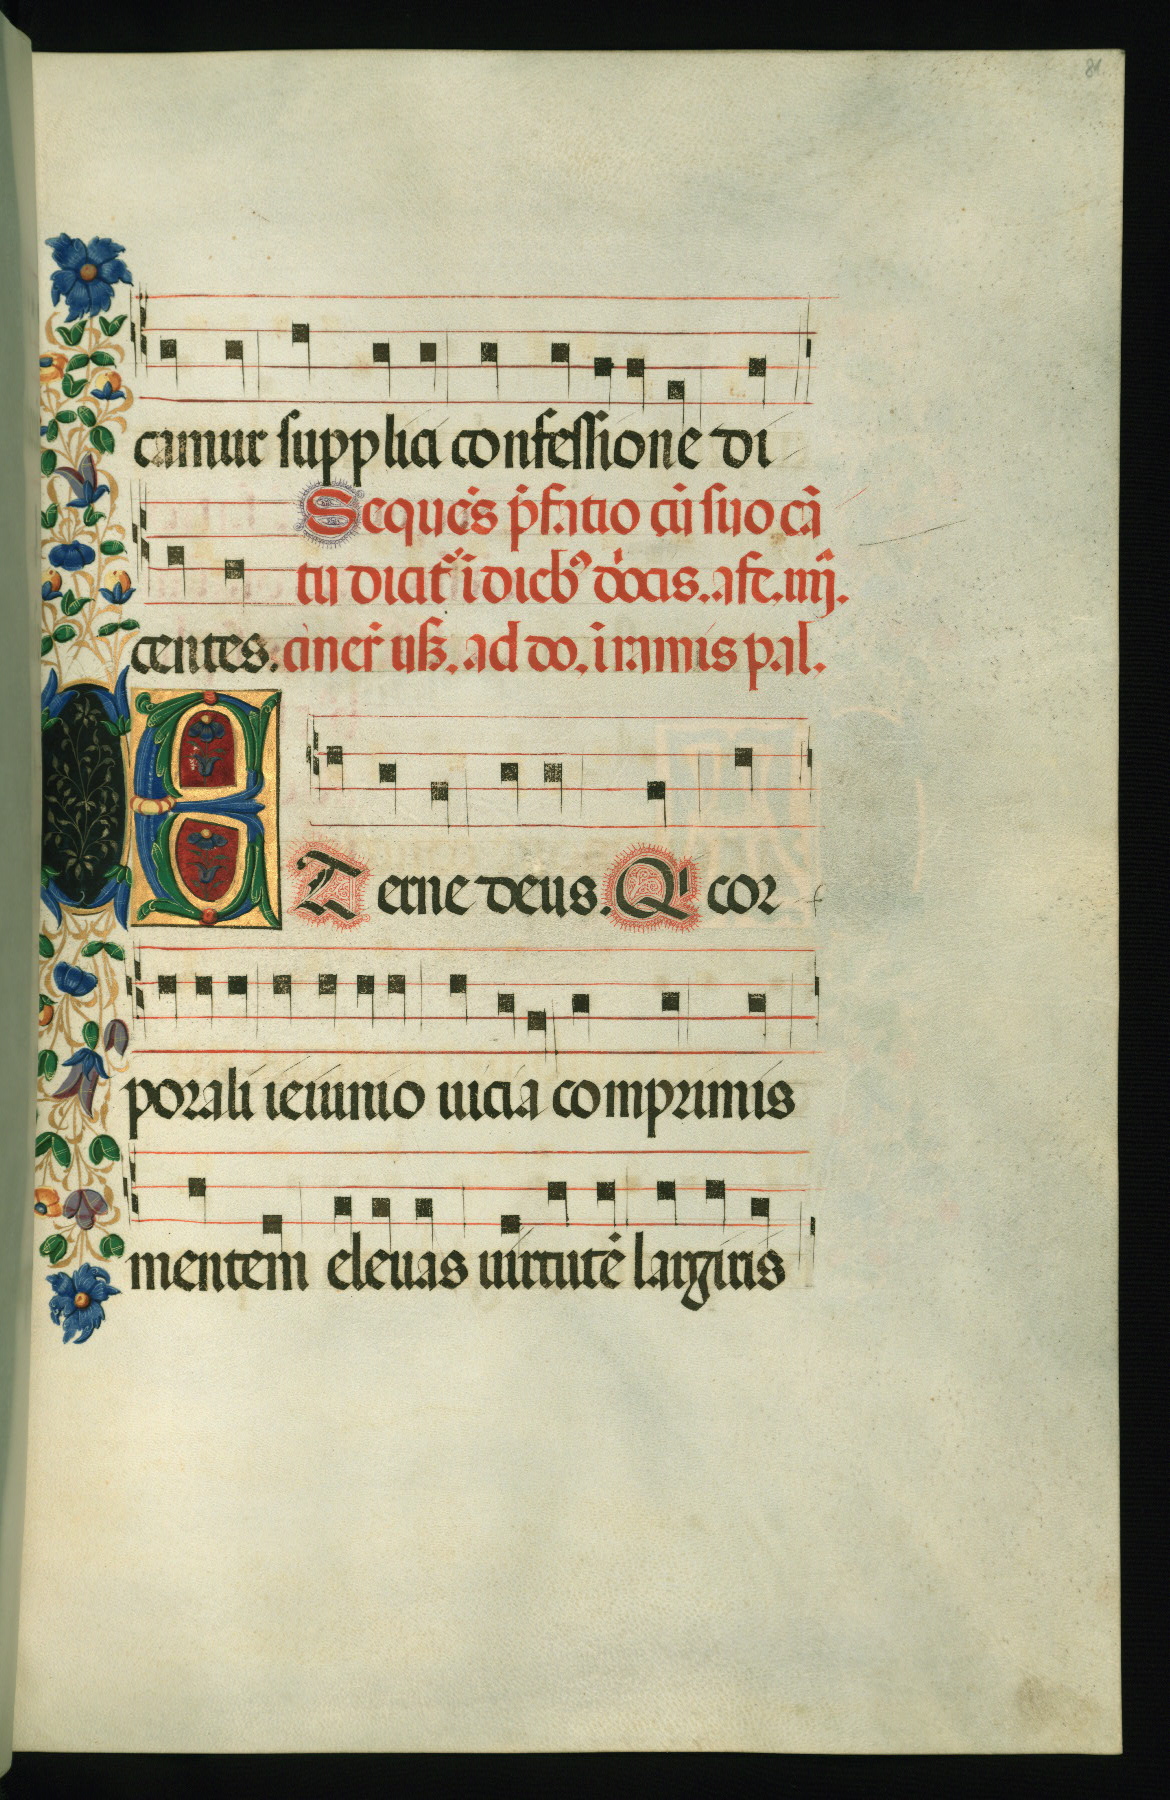 81
camur supplici confessione di
Sequēs p̄fatio cū suo cā
tu dicit᷑ ī dieb⁹ d̄o̅cis. a fe. iiij.
centes. cinerꝝ usq̨. ad do. ī ramis pal.
ETerne deus. Qⁱ cor
porali ieiunio uicia comprimis
mentem eleuas uirtutē largiris